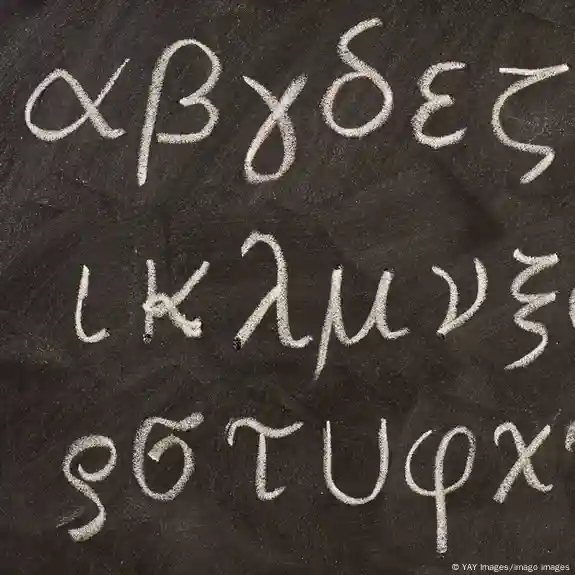 α β γ δ ε ζ
ι κ λ μ ν ξ
ρ σ τ υ φ χ
© YAY Images/imago images